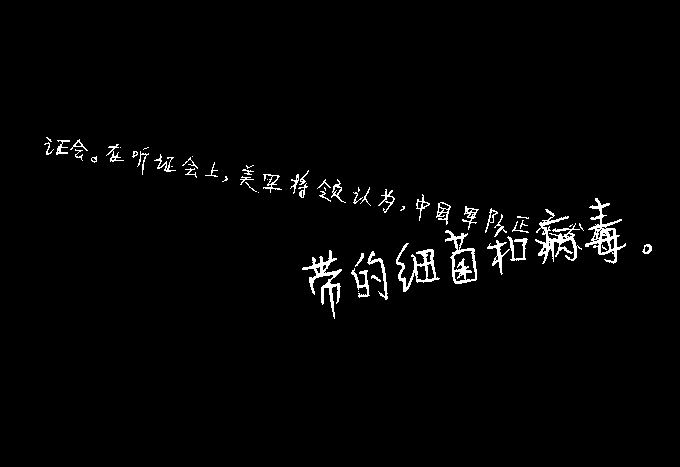 证会。在听证会上,美军将领认为,中国军队正
带的细菌和病毒。